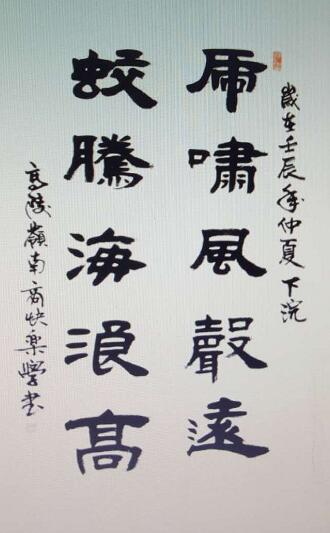 歲在壬辰年仲夏下浣
虎嘯風聲遠
蛟騰海浪高
高陵嶺南商快樂學書